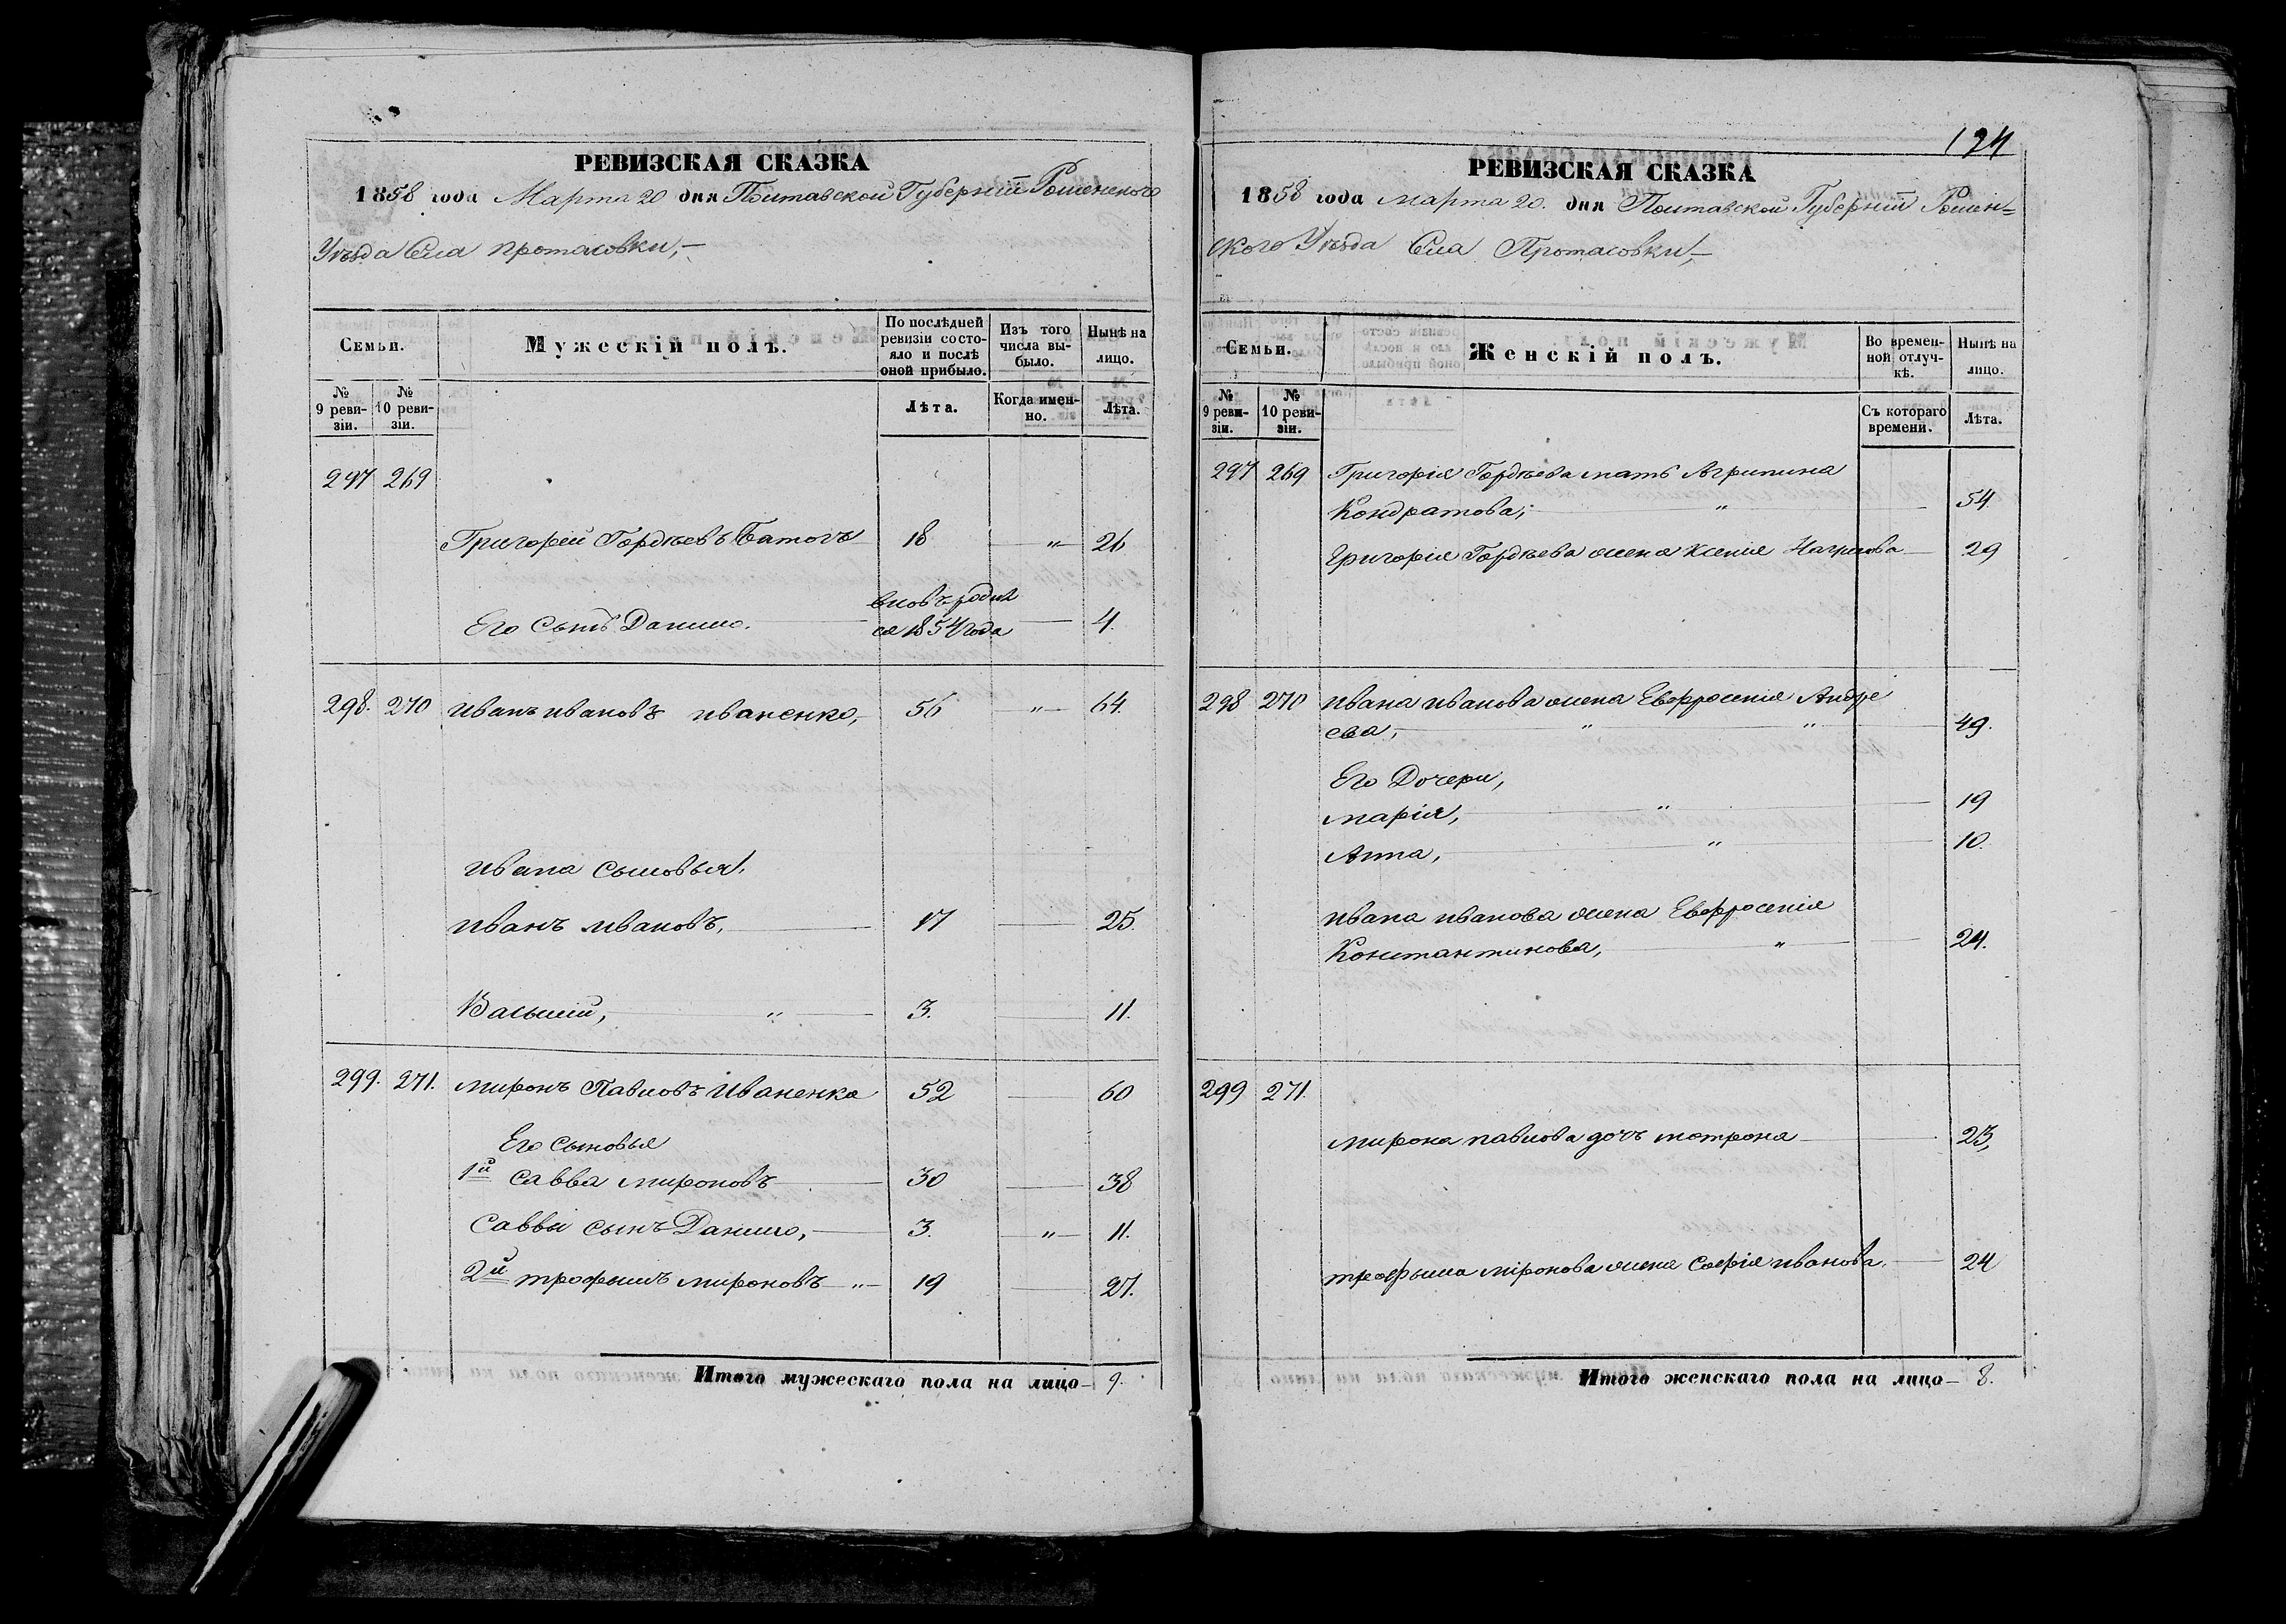 РЕВИЗСКАЯ СКАЗКА
1858 года Марта 20 дня Полтавской Губерніи Роменского
Уѣзда Села Протасовки,—
Семьи.
Мужескій полъ.
По послѣдней ревизіи состояло и послѣ оной прибыло.
Изъ того числа выбыло.
Нынѣ на лицо.
№ 9 ревизіи.
№ 10 ревизіи.
Лѣта.
Когда именно.
Лѣта.
297 269
Григорій Гордѣевъ Батогъ 18 — „ — 26
Его Сынъ Данило. вновь родил
ся 1854 года — 4.
298. 270 Иванъ Ивановъ Иваненко, 56 „ — 64.
Ивана Сыновья,
Иванъ Ивановъ, 17 — 25.
Василий, „ — 3. — 11.
299. 271. Миронъ Павловъ Иваненко 52 — 60
Его Сыновья
1й Савва Мироновъ 30 — 38
Саввы сынъ Данило, — 3. — „ — 11.
2й Трофимъ Мироновъ „ — 19 — 27.
Итого мужескаго пола на лицо — 9.
124
РЕВИЗСКАЯ СКАЗКА
1858 года марта 20. дня Полтавской Губерніи Ромен=
ского Уѣзда Села Протасовки,—
Семьи.
Женскій полъ.
Во временной отлучкѣ.
Нынѣ на лицо.
№ 9 ревизіи.
№ 10 ревизіи.
Съ котораго времени.
Лѣта.
297 269 Григорія Гордѣева мать Агрипина
Кондратова; „ — 54.
Григорія Гордѣева жена Ксенія — 29
298 270 Ивана Иванова жена Евфросенія Андре
ева, „ „ 49.
Его Дочери,
Марія, „ — 19
Анна, „ — 10.
Ивана Иванова жена Евфросенія
Константинова, „ — 24.
299 271.
Мирона Павлова дочь Мотрона — 23,
Трофима Міронова жена Софія Иванова. — 24
Итого женскаго пола на лицо — 8.